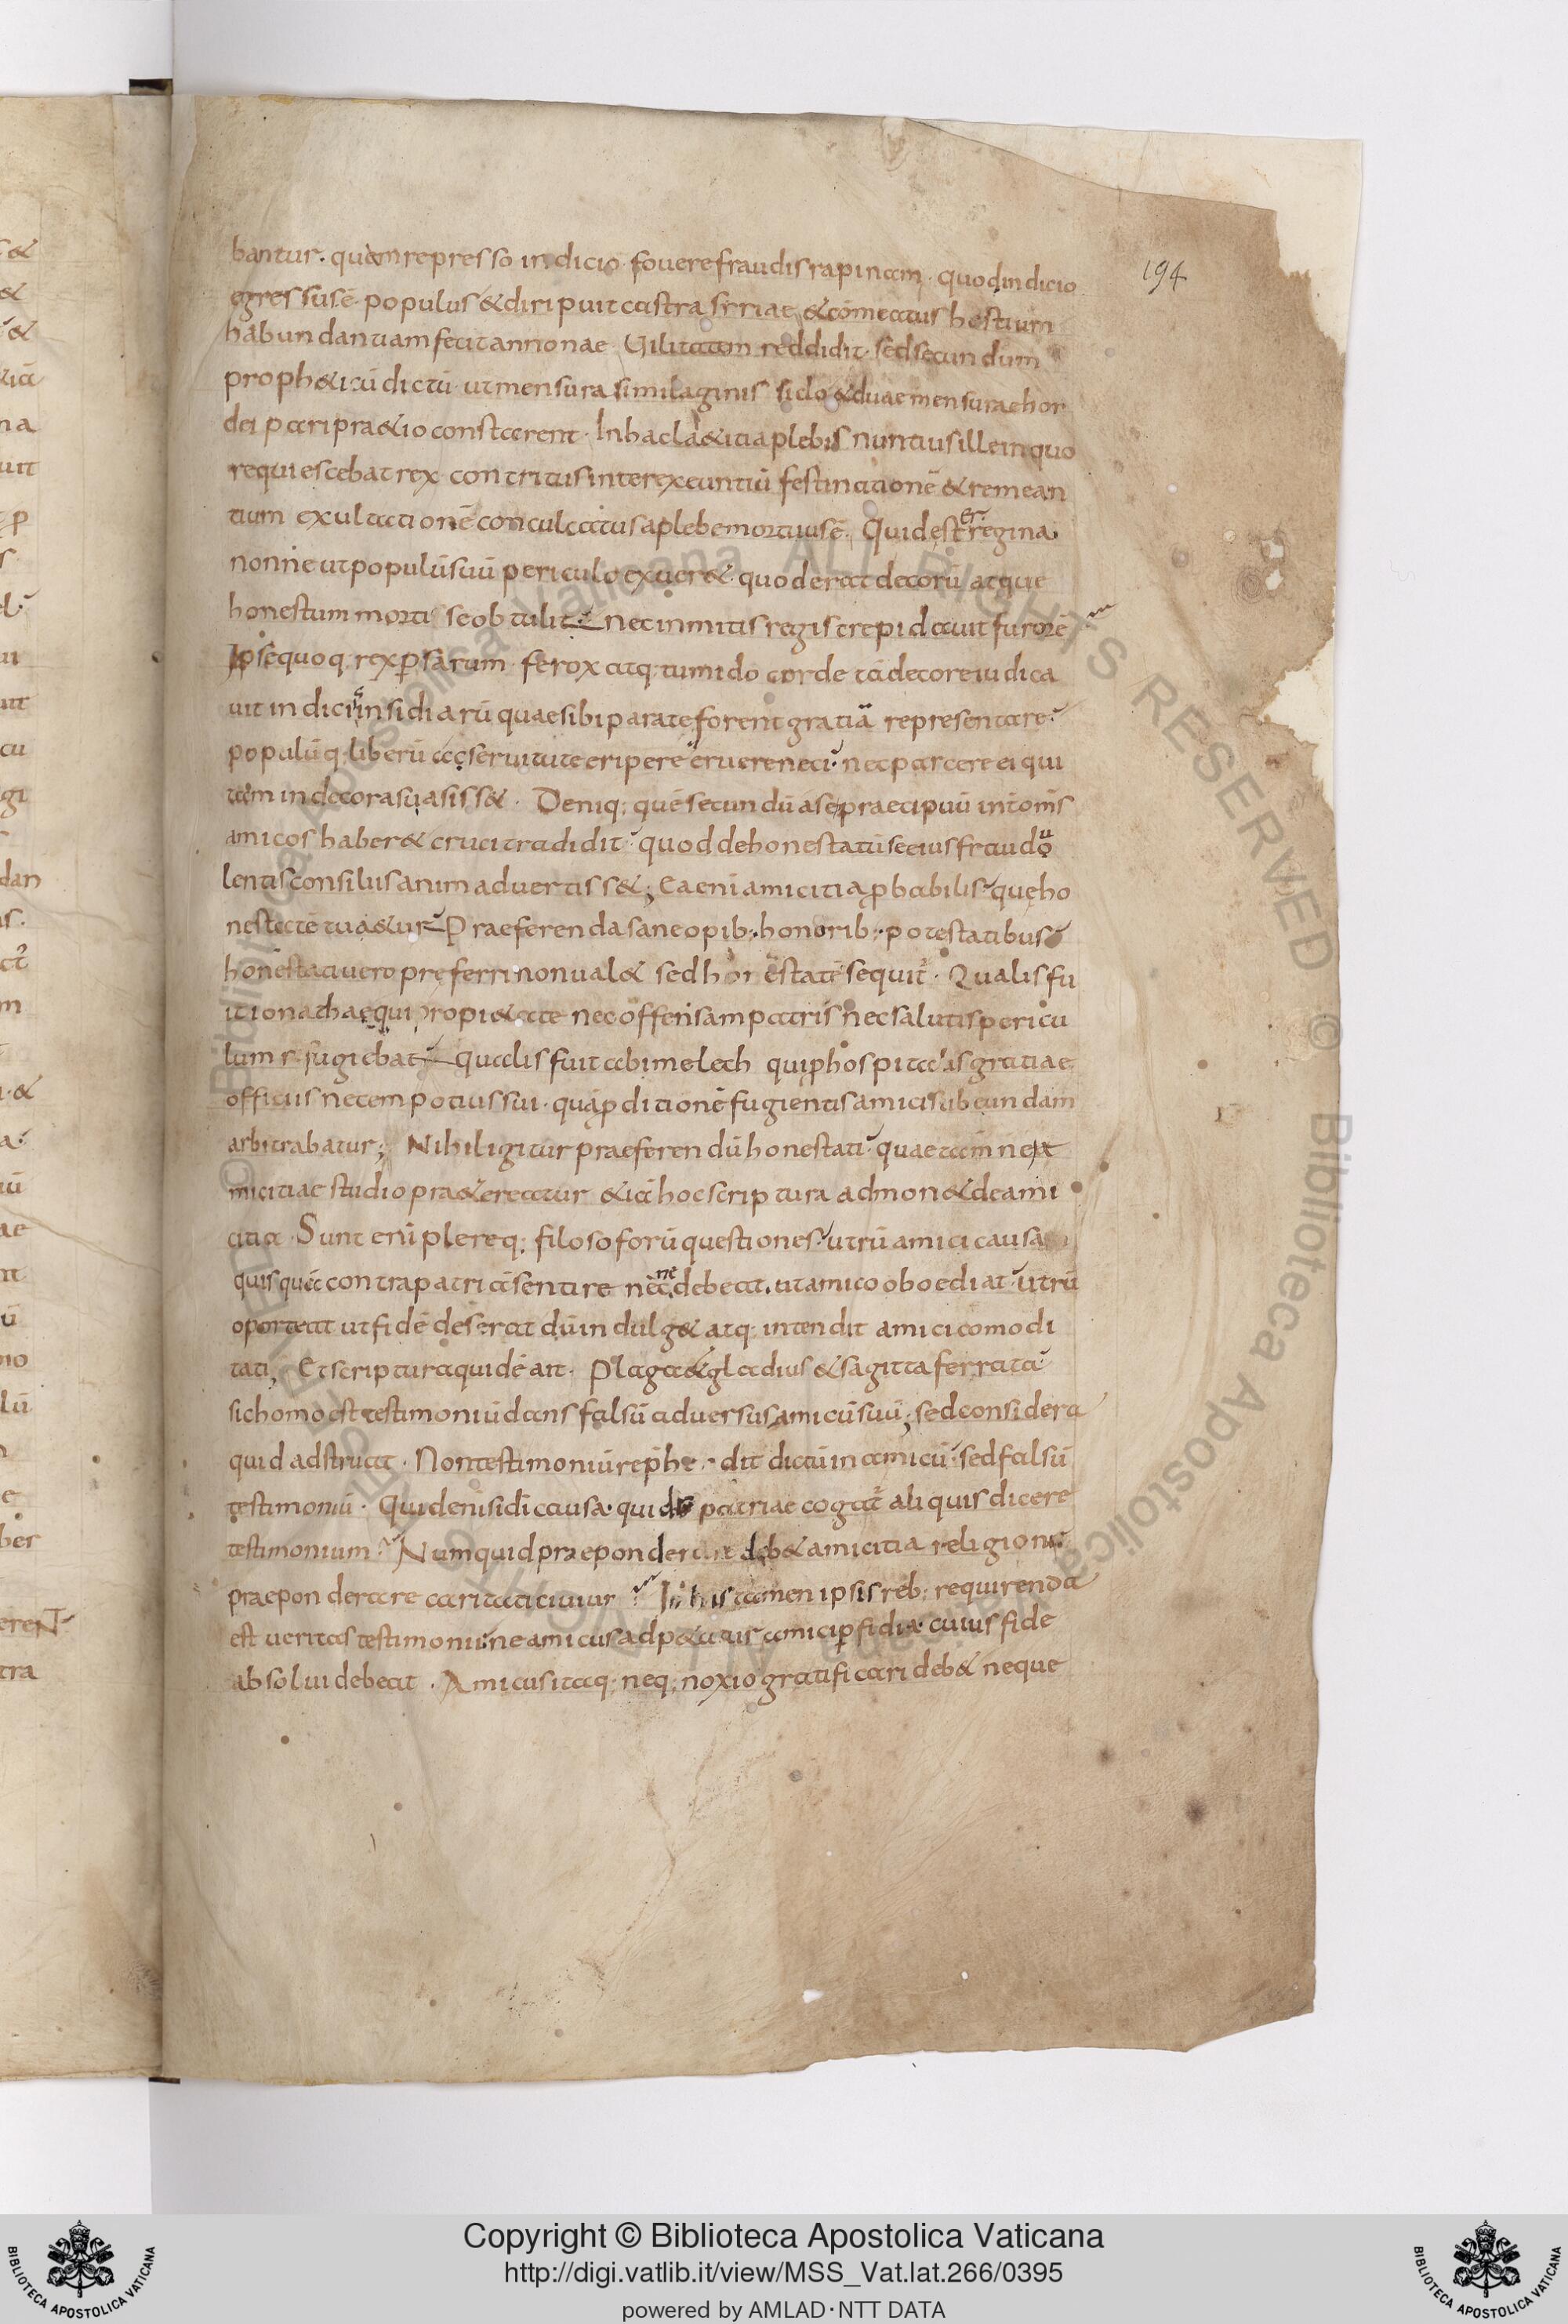 194
bantur. quam represso indicio fovere fraudis rapinam. quod indicio
egressus ē populus & diripuit castra siriae & cōmeatus hostium
habundantiam fecit annonae Vilitatem reddidit. sed secundum
proph&icū dictū ut mensura similaginis siclo & duae mensurae hor
dei pari pra&io constarent. In hac la&itia plebis nuntius ille in quo
requiescebat rex contritus inter exeuntiū festinationē & remean
tium exultationē conculcatus a plebe mortuus ē. Quid est er regina
nonne ut populū suū periculo exuer& quod erat decorū atque
honestum morti se obtulit. nec inmitis regis trepidavit furorē
Ipse quoq; rex psarum ferox atq; tumido corde tā decore iudica
vit indiciū insidiarū quae sibi paratae forent gratiā representare.
populū q; liberū a servitute eripere eruere neci. nec parcere ei qui
tam indecora suasiss&. Deniq; quē secundū a se praecipuū int omīs
amicos haber& cruci tradidit. quod dehonestatū se eius fraudu
lentis consiliis animadvertiss&; Ea enī amicitia pbabilis. que ho
nestatē tua&ur. Praeferenda sane opib; honorib; potestatibus
honestati vero preferri non val& sed honestatē sequit. Qualis fu
it ionathae qui pro pi&ate nec offensam patris nec salutis pericu
lum refugiebat. qualis fuit abimelech qui p hospitalis gratiae
officiis necem potius sui. quā pditionē fugientis amici subeundam
arbitrabatur; Nihil igitur praeferendū honestati. quae tam ne a
micitiae studio pra&ereatur &iā hoc scriptura admon& de ami
citia. Sunt enī plereq; filosoforū questiones. utrū amici causa
quisquā contra patriā sentire nec ne debeat. ut amico oboediat. utrū
oporteat ut fidē deserat dū indulg& atq; intendit amici comodi
tati; Et scriptura quidē ait. Plaga & gladius & sagitta ferrata
sic homo est testimoniū dans falsū adversus amicū suū; sed considera
quid adstruat. Non testimoniū rephendit dictū in amicū. sed falsū
testimoniū. Quid enī si dī causa. quid patriae cogat aliquis dicere
testimonium. Numquid praeponderare deb& amicitia religioni
praeponderare caritati civiū. In his tamen ipsis reb; requirenda
est veritas testimonii. ne amicus adp&atur amici pfidia. cuius fide
absolvi debeat. Amicus itaq; neq; noxio gratificari deb& neque
Copyright © Biblioteca Apostolica Vaticana
http://digi.vatlib.it/view/MSS_Vat.lat.266/0395
powered by AMLAD·NTT DATA